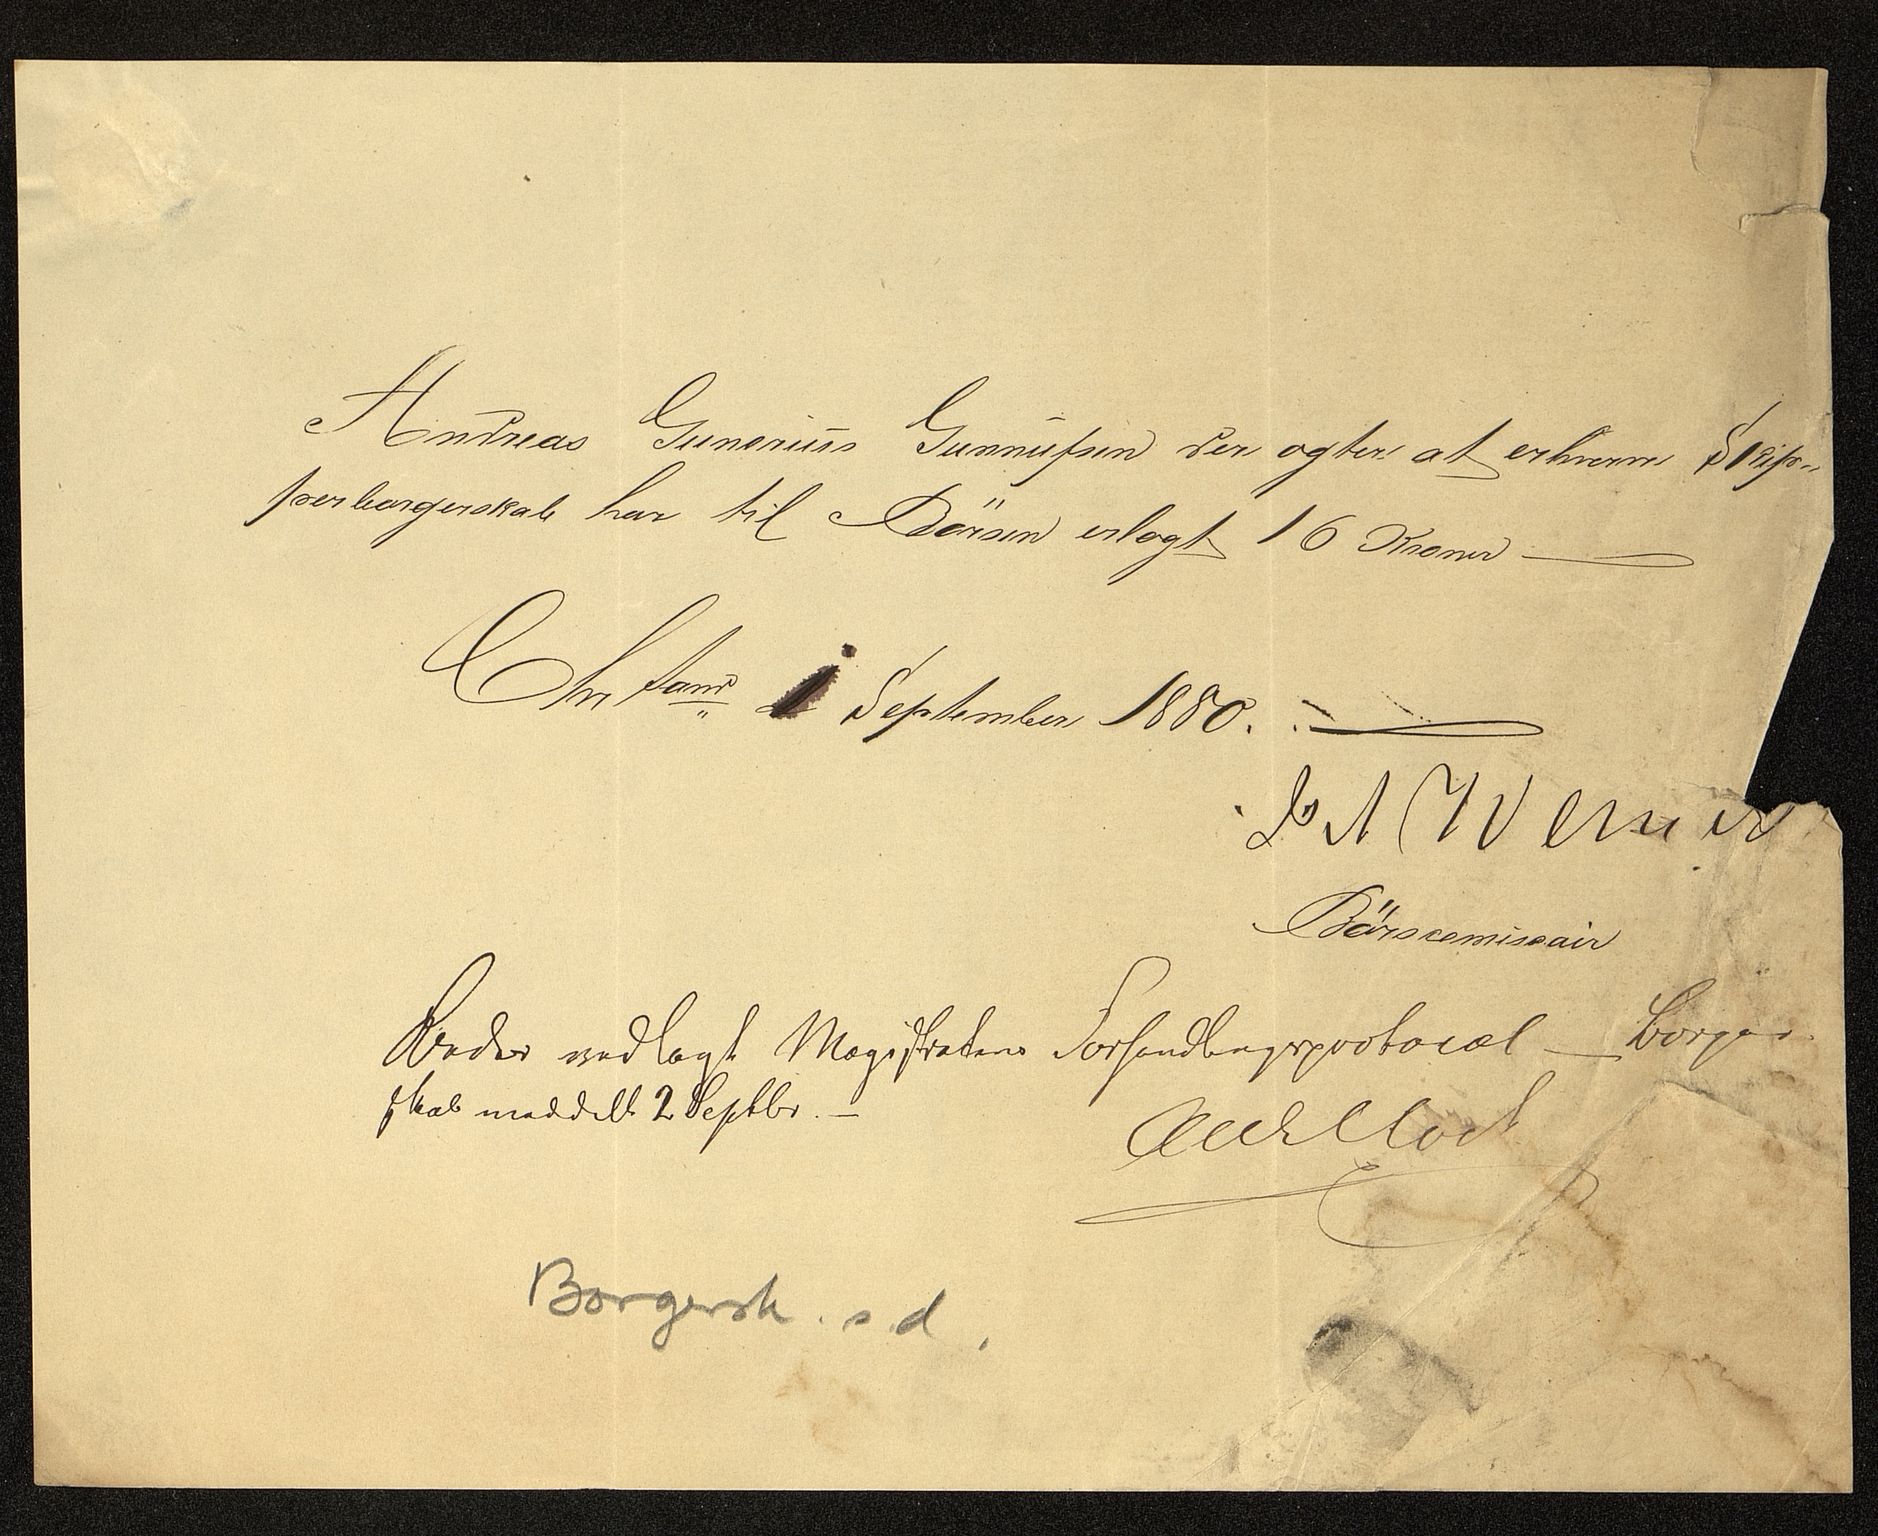 Andreas Gunerius Gunnufsen der agter at erhverve Skip-
perborgerskab har til Börsen erlagt 16 Kroner
Chrsand 1 September 1880.
Werner
Börscomissair
Bedes vedlagt Magistratens Forhandlingsprotocol — Borger-
skab meddelt 2 Septbr. —
Borgersk. s.d.